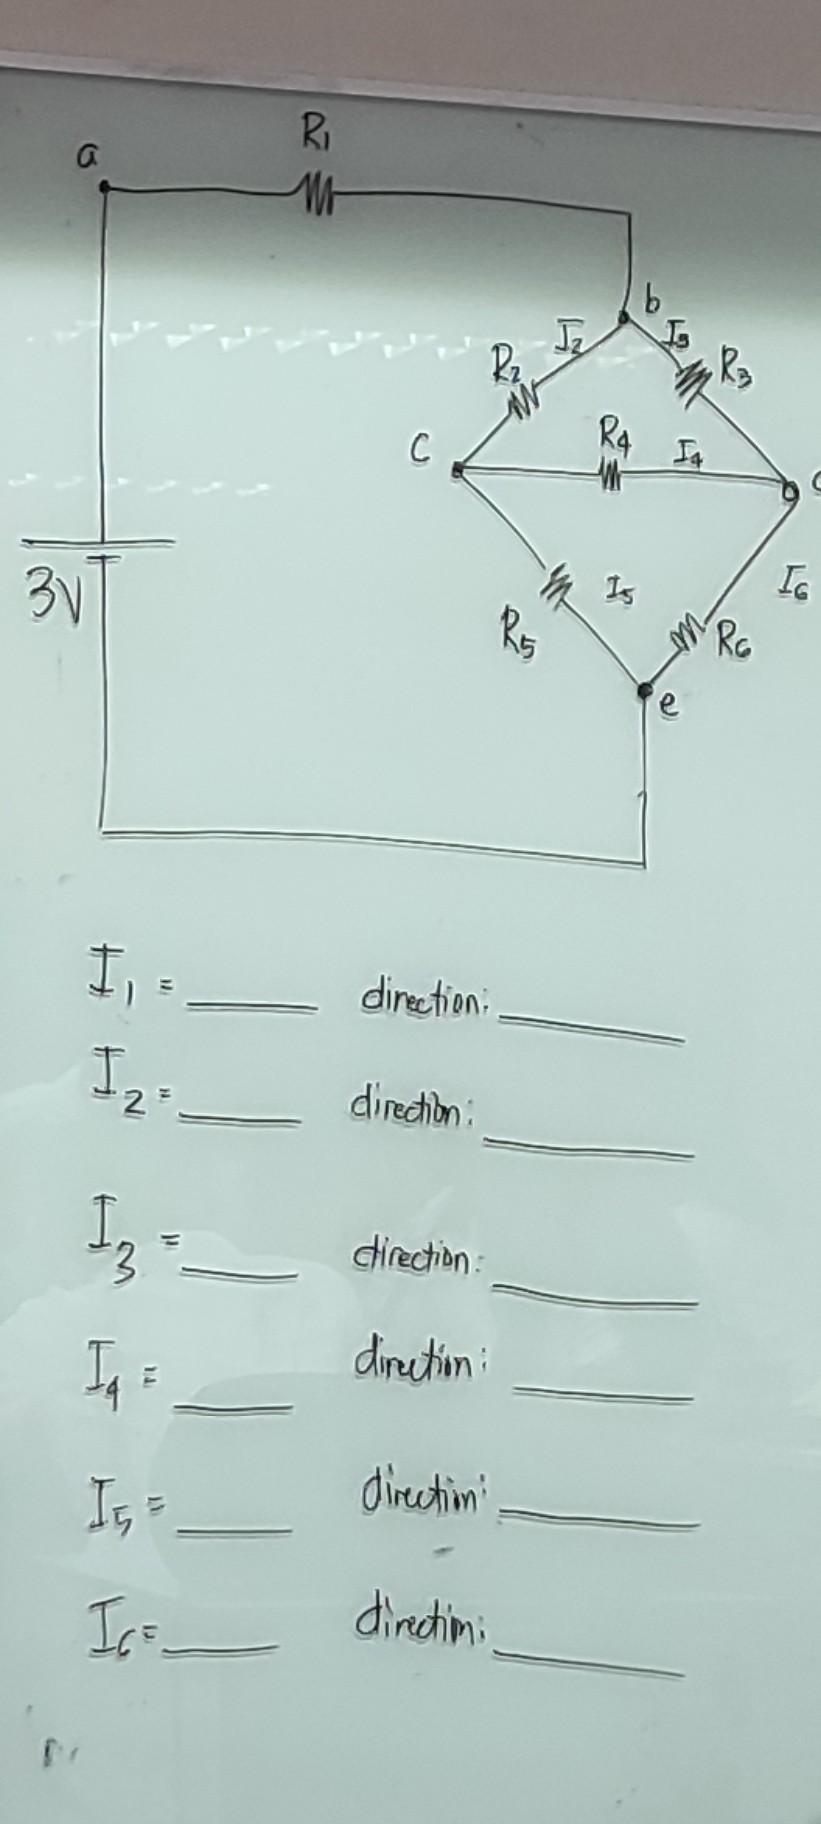 R1
a
b
I2 I3
R2 R3
R4
C I4
3V I5 I6
R5 R6
e
I1 = ____ direction: ____
I2 = ____ direction: ____
I3 = ____ direction: ____
I4 = ____ direction: ____
I5 = ____ direction: ____
I6 = ____ direction: ____